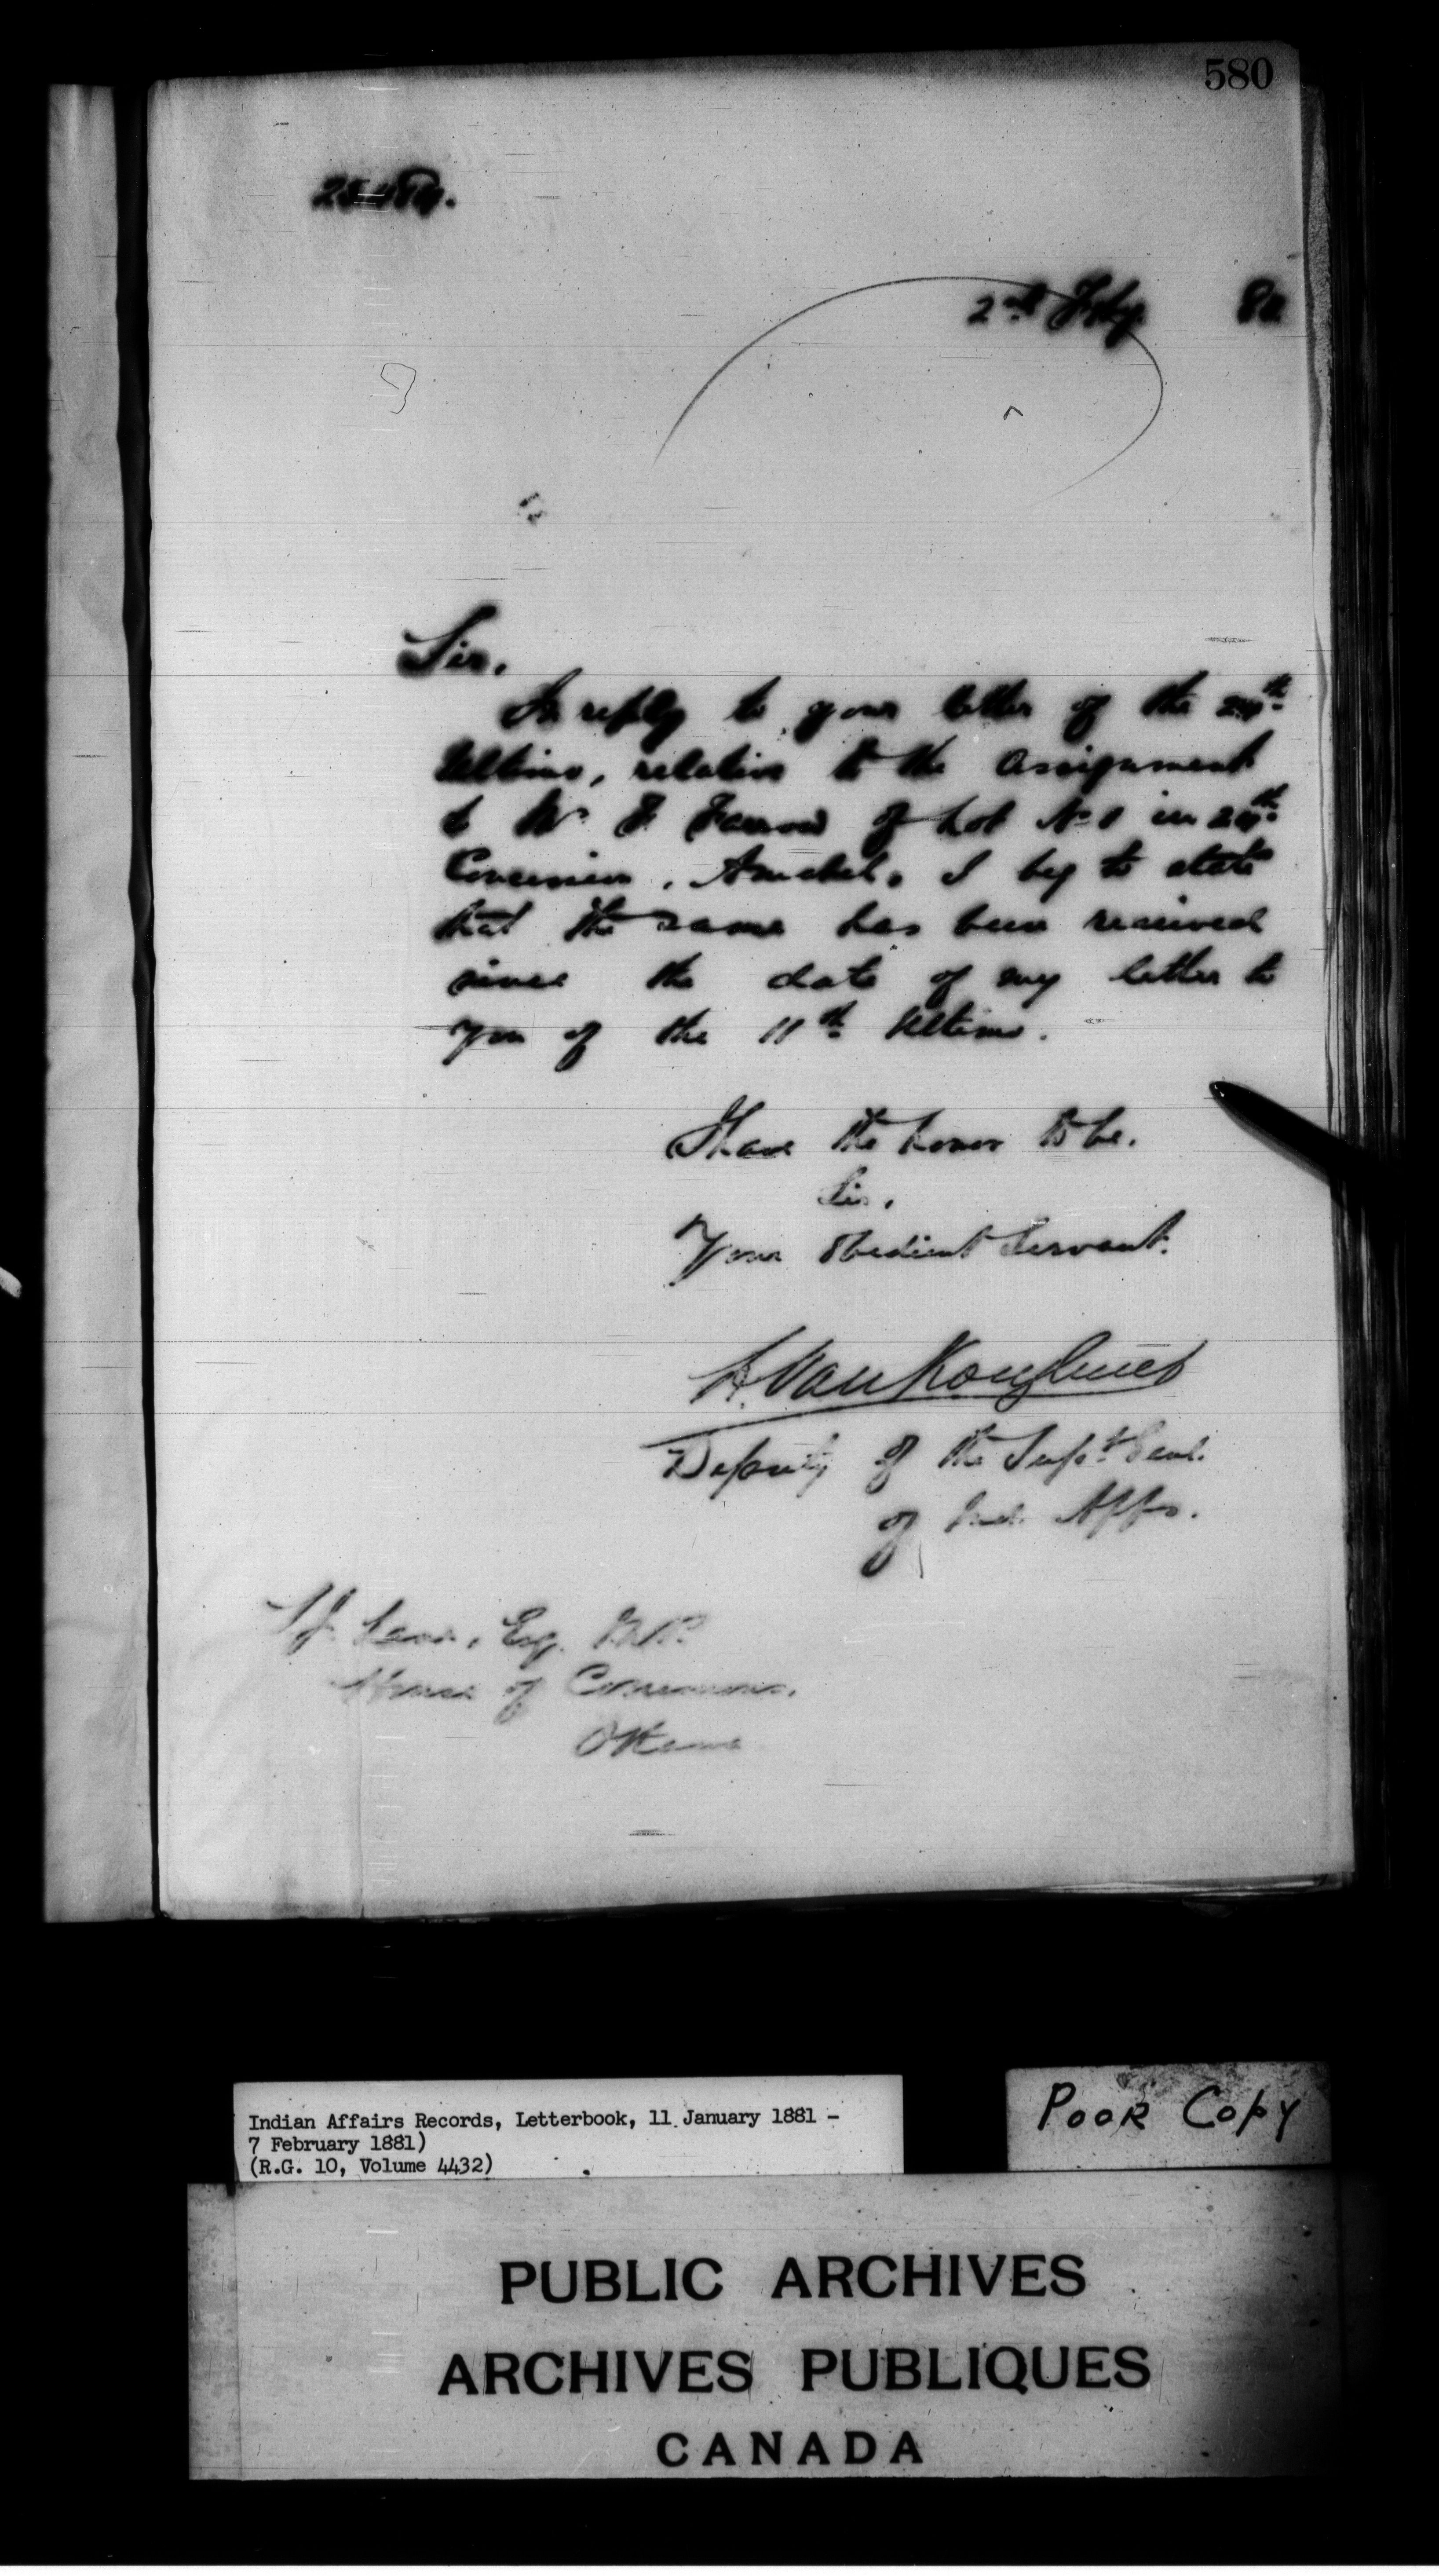 580
2nd Feby. 
Sir,
In reply to your letter of the 24th
Ultimo, relative to the Assignment
to Mr F. Farrow of Lot No 1 in 24th
Concession, Amabel, I beg to state
that the same has been received
since the date of my letter to
you of the 11th Ultimo.
I have the honor to be,
Sir,
Your obedient Servant.
L. VanKoughnet
Deputy of the Supt. Genl.
of Ind. Affrs.
Esq. M.P.
House of Commons,
Ottawa
Indian Affairs Records, Letterbook, 11 January 1881 -
7 February 1881)
(R.G. 10, Volume 4432)
POOR COPY
PUBLIC ARCHIVES
ARCHIVES PUBLIQUES
CANADA